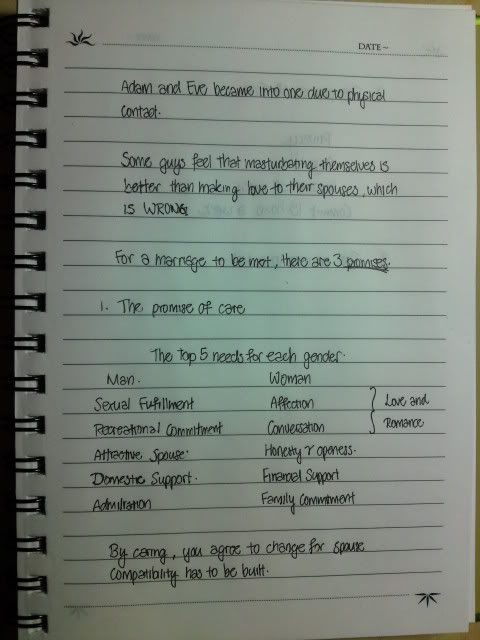 DATE~
Adam and Eve became into one due to physical
contact.
Some guys feel that masturbating themselves is
better than making love to their spouses, which
is WRONG
For a marriage to be met, there are 3 promises.
1. The promise of care
The top 5 needs for each gender.
Man. Woman
Sexual Fulfillment Affection } Love and
Recreational Commitment Conversation Romance
Attractive Spouse. Honesty & openess.
Domestic Support. Financial Support
Admiration Family Commitment
By caring, you agree to change for spouse
Compatibility has to be built.